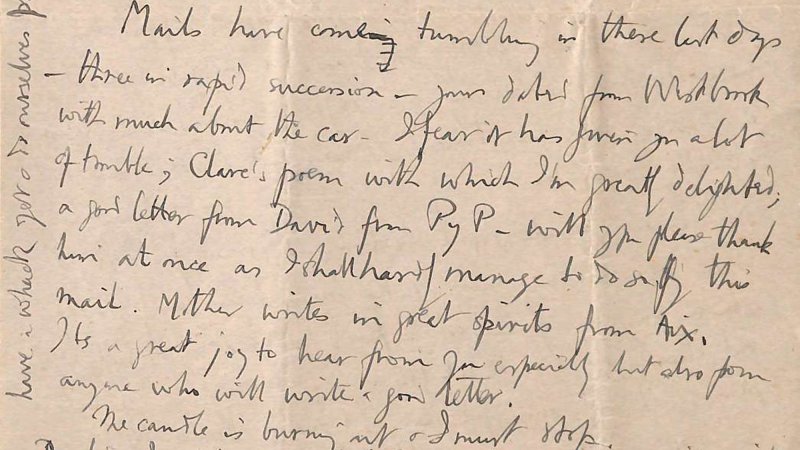 Mails have come tumbling in these last days
- three in rapid succession - yours dated from Westbrook
with much about the car - I fear it has given you a lot
of trouble; Clare's poem with which I'm greatly delighted;
a good letter from David from P y P - will you please thank
him at once as I shall hardly manage to do so by this
mail. Mother writes in great spirits from Aix.
Its a great joy to hear from you especially but also from
anyone who will write a good letter.
The candle is burning out & I must stop.
have a whack get & do ourselves